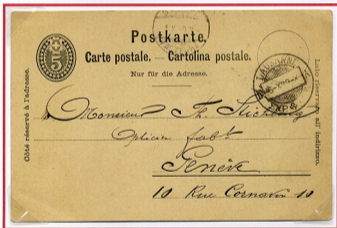 Postkarte.
Carte postale. — Cartolina postale.
Nur für die Adresse.
5
Côté réservé à l'adresse.
Lato riservato all' indirizzo.
LAUSANNE
EXP.
Monsieur Th.
Opticien fabt
Genève
10 Rue Cornavin 10